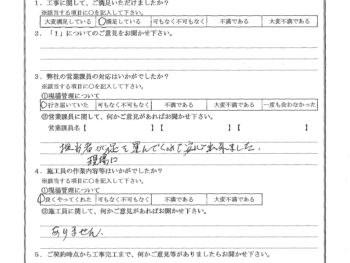 1．工事に関して、ご満足いただけましたか？
※該当する項目に○を記入して下さい。
大変満足している ○満足している 可もなく不可もなく 不満である 大変不満である
2．「1」についてのご意見をお聞かせ下さい。
3．弊社の営業課員の対応はいかがでしたか？
※該当する項目に○を記入して下さい。
①現場管理について
○行き届いていた 可もなく不可もなく 不満である 大変不満である 一度も会わなかった
②営業課員に関して、何かご意見があればお聞かせ下さい。
営業課員名【 】【 】【 】
担当者が足を運んでくれて安心出来ました。
現場に
4．施工員の作業内容等はいかがでしたか？
※該当する項目に○を記入して下さい。
①現場管理について
○良くやってくれた 可もなく不可もなく 不満である 大変不満である
②施工員に関して、何かご意見があればお聞かせ下さい。
ありません。
5．ご契約時点から工事完了まで、何かご意見等がありましたらお聞かせ下さい。